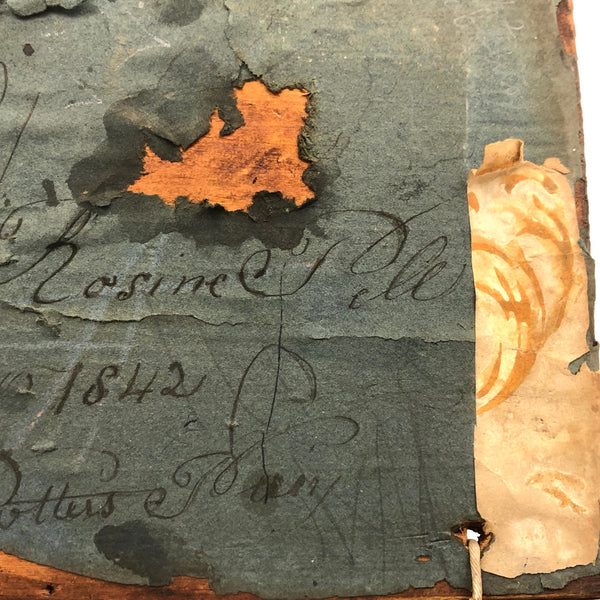 Rosine Pell
1842
Potters